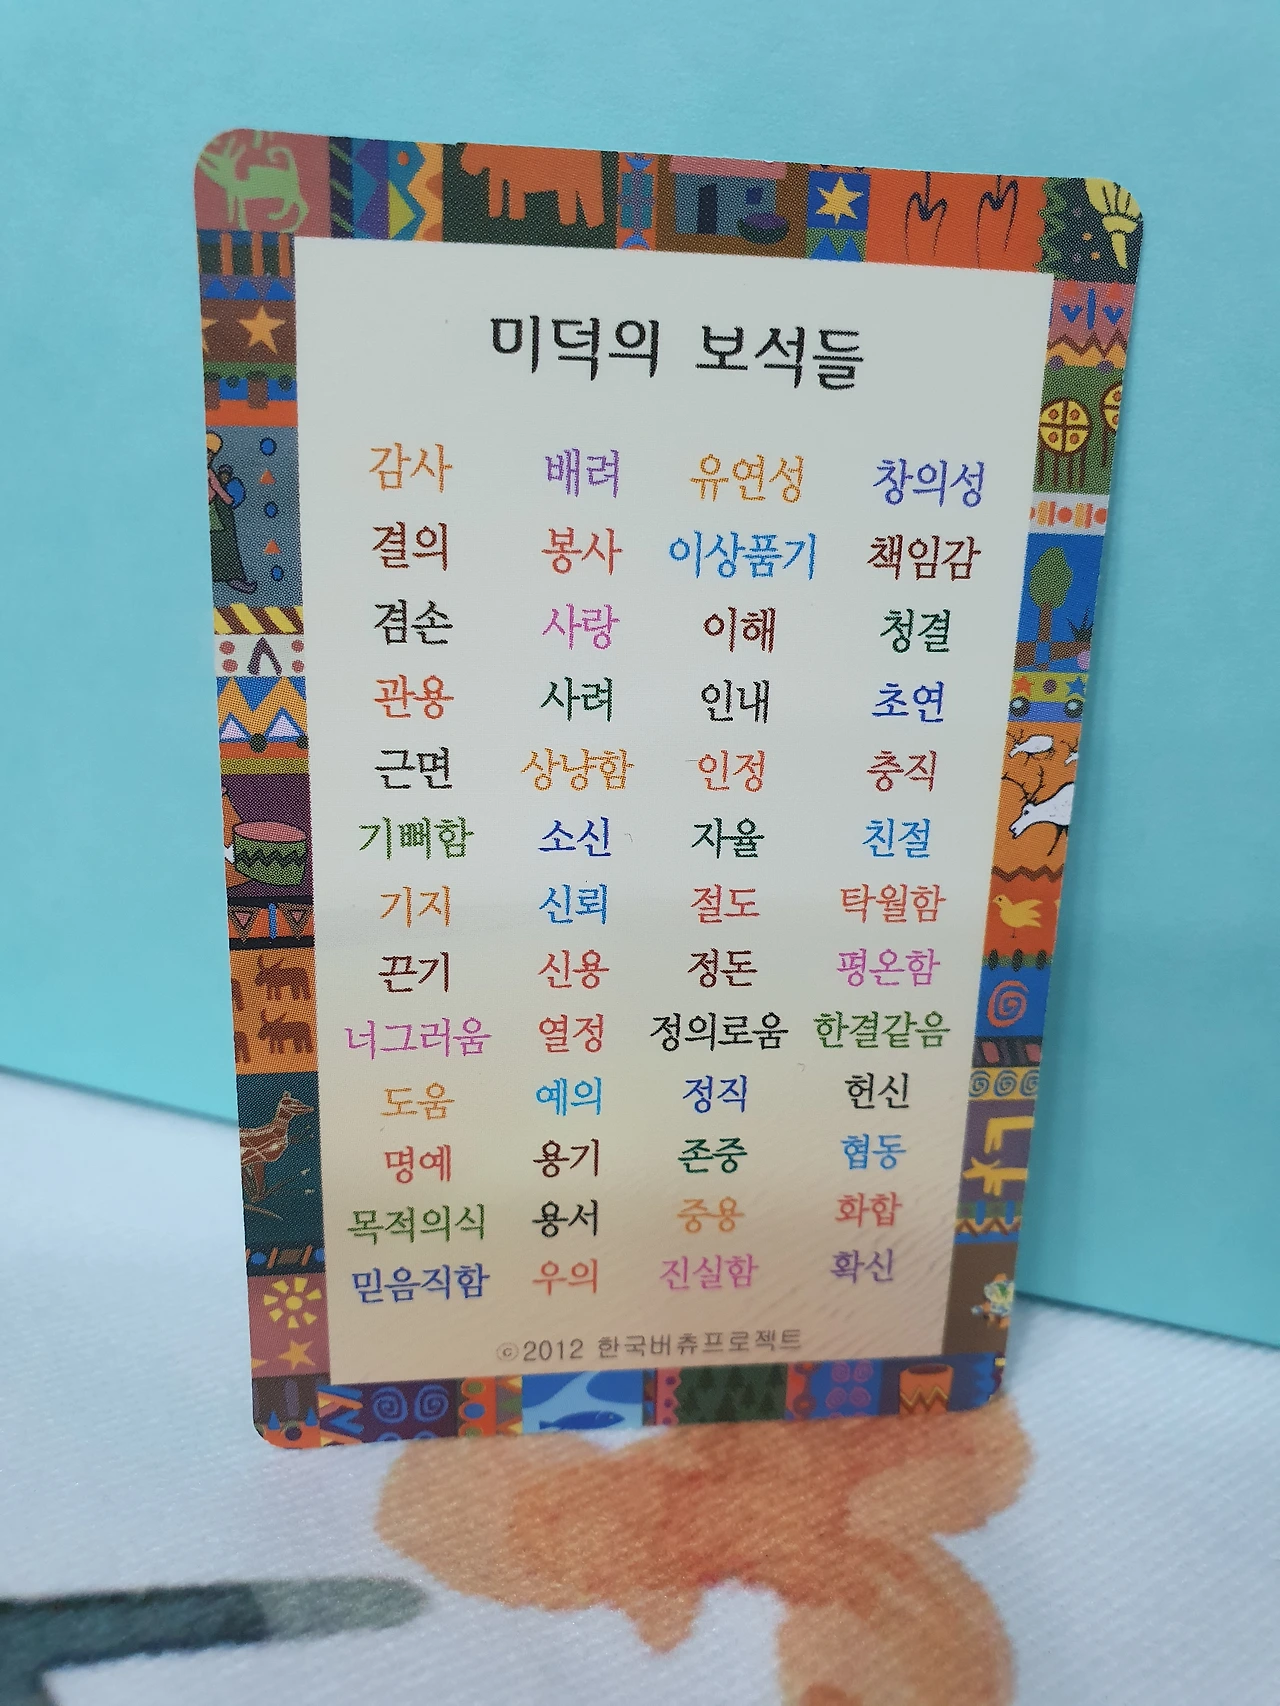 미덕의 보석들
감사 배려 유연성 창의성
결의 봉사 이상품기 책임감
겸손 사랑 이해 청결
관용 사려 인내 초연
근면 상냥함 인정 충직
기뻐함 소신 자율 친절
기지 신뢰 절도 탁월함
끈기 신용 정돈 평온함
너그러움 열정 정의로움 한결같음
도움 예의 정직 헌신
명예 용기 존중 협동
목적의식 용서 중용 화합
믿음직함 우의 진실함 확신
ⓒ2012 한국버츄프로젝트